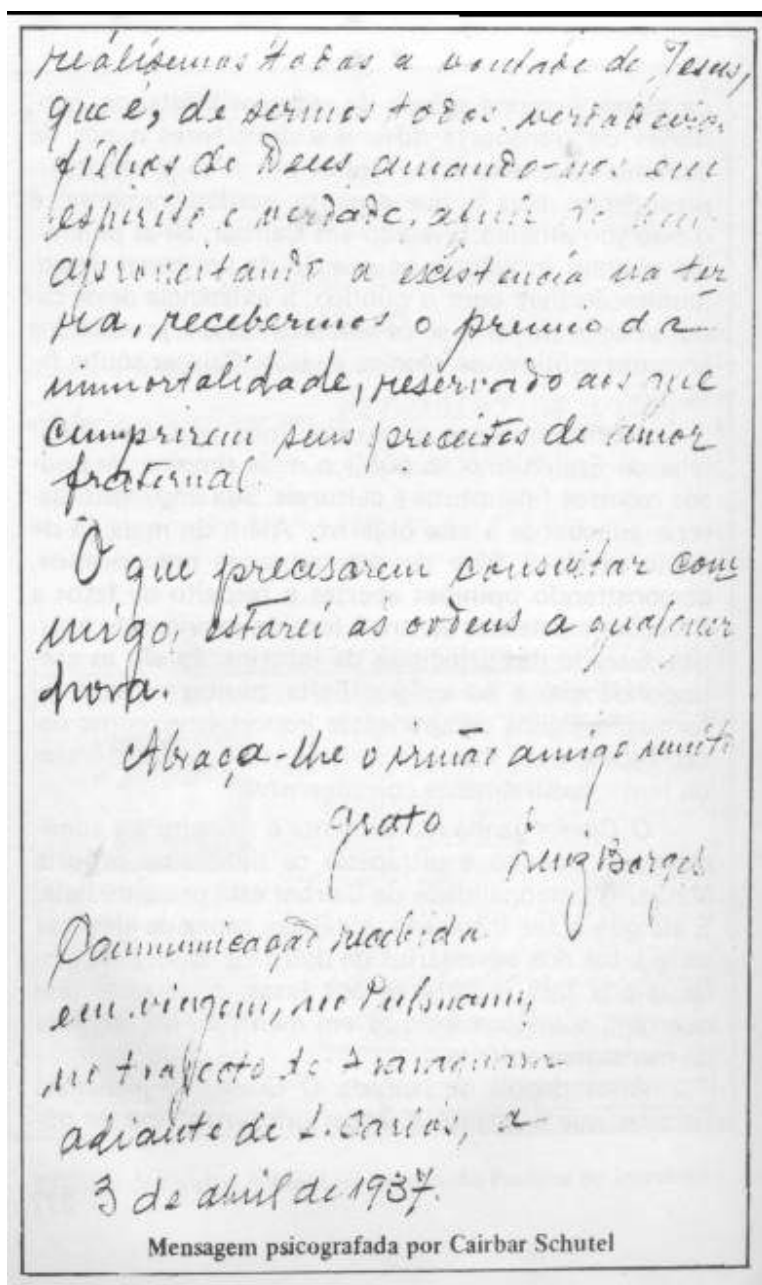 realisemos todos a vontade de Jesus,
que é, de sermos todos verdadeiros
filhos de Deus, amando-nos em
espirito e verdade, afim de bem
aproveitando a existencia na ter
ra, recebermos o premio da
immortalidade, reservado aos que
cumprirem seus preceitos de amor
fraternal.
O que precisarem consultar com
migo, estarei ás ordens a qualquer
hora.
Abraça-lhe o irmão amigo muito
grato
Borges
Communicação recebida
em viagem, no Pulsmann,
no trajecto de Araraquara
adiante de S. Carlos, a
3 de abril de 1937.
Mensagem psicografada por Cairbar Schutel